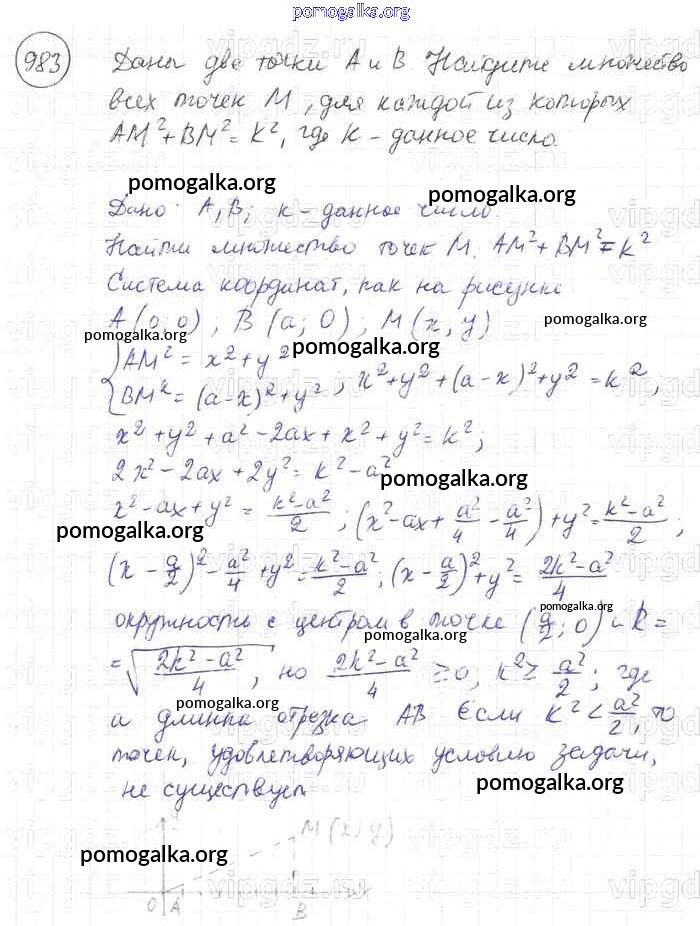 pomogalka.org
983 Даны две точки A и B. Найдите множество
всех точек M, для каждой из которых
AM² + BM² = k², где k - данное число.
pomogalka.org
pomogalka.org
Дано: A, B; k - данное число.
Найти множество точек M. AM² + BM² = k²
Система координат, как на рисунке
A (0;0); B (a; 0); M (x; y)
pomogalka.org
pomogalka.org
pomogalka.org
{AM² = x² + y²
{BM² = (a-x)² + y²; x² + y² + (a-x)² + y² = k²;
x² + y² + a² - 2ax + x² + y² = k²;
2x² - 2ax + 2y² = k² - a²
pomogalka.org
x² - ax + y² = (k² - a²)/2; (x² - ax + a²/4 - a²/4) + y² = (k² - a²)/2;
pomogalka.org
(x - a/2)² - a²/4 + y² = (k² - a²)/2; (x - a/2)² + y² = (2k² - a²)/4
pomogalka.org
окружность с центром в точке (a/2; 0) и R =
pomogalka.org
= √((2k² - a²)/4), но (2k² - a²)/4 ≥ 0; k² ≥ a²/2; где
pomogalka.org
a длинна отрезка AB Если k² < a²/2, то
точек, удовлетворяющих условию задачи,
не существует.
pomogalka.org
y
M (x; y)
pomogalka.org
O A B x